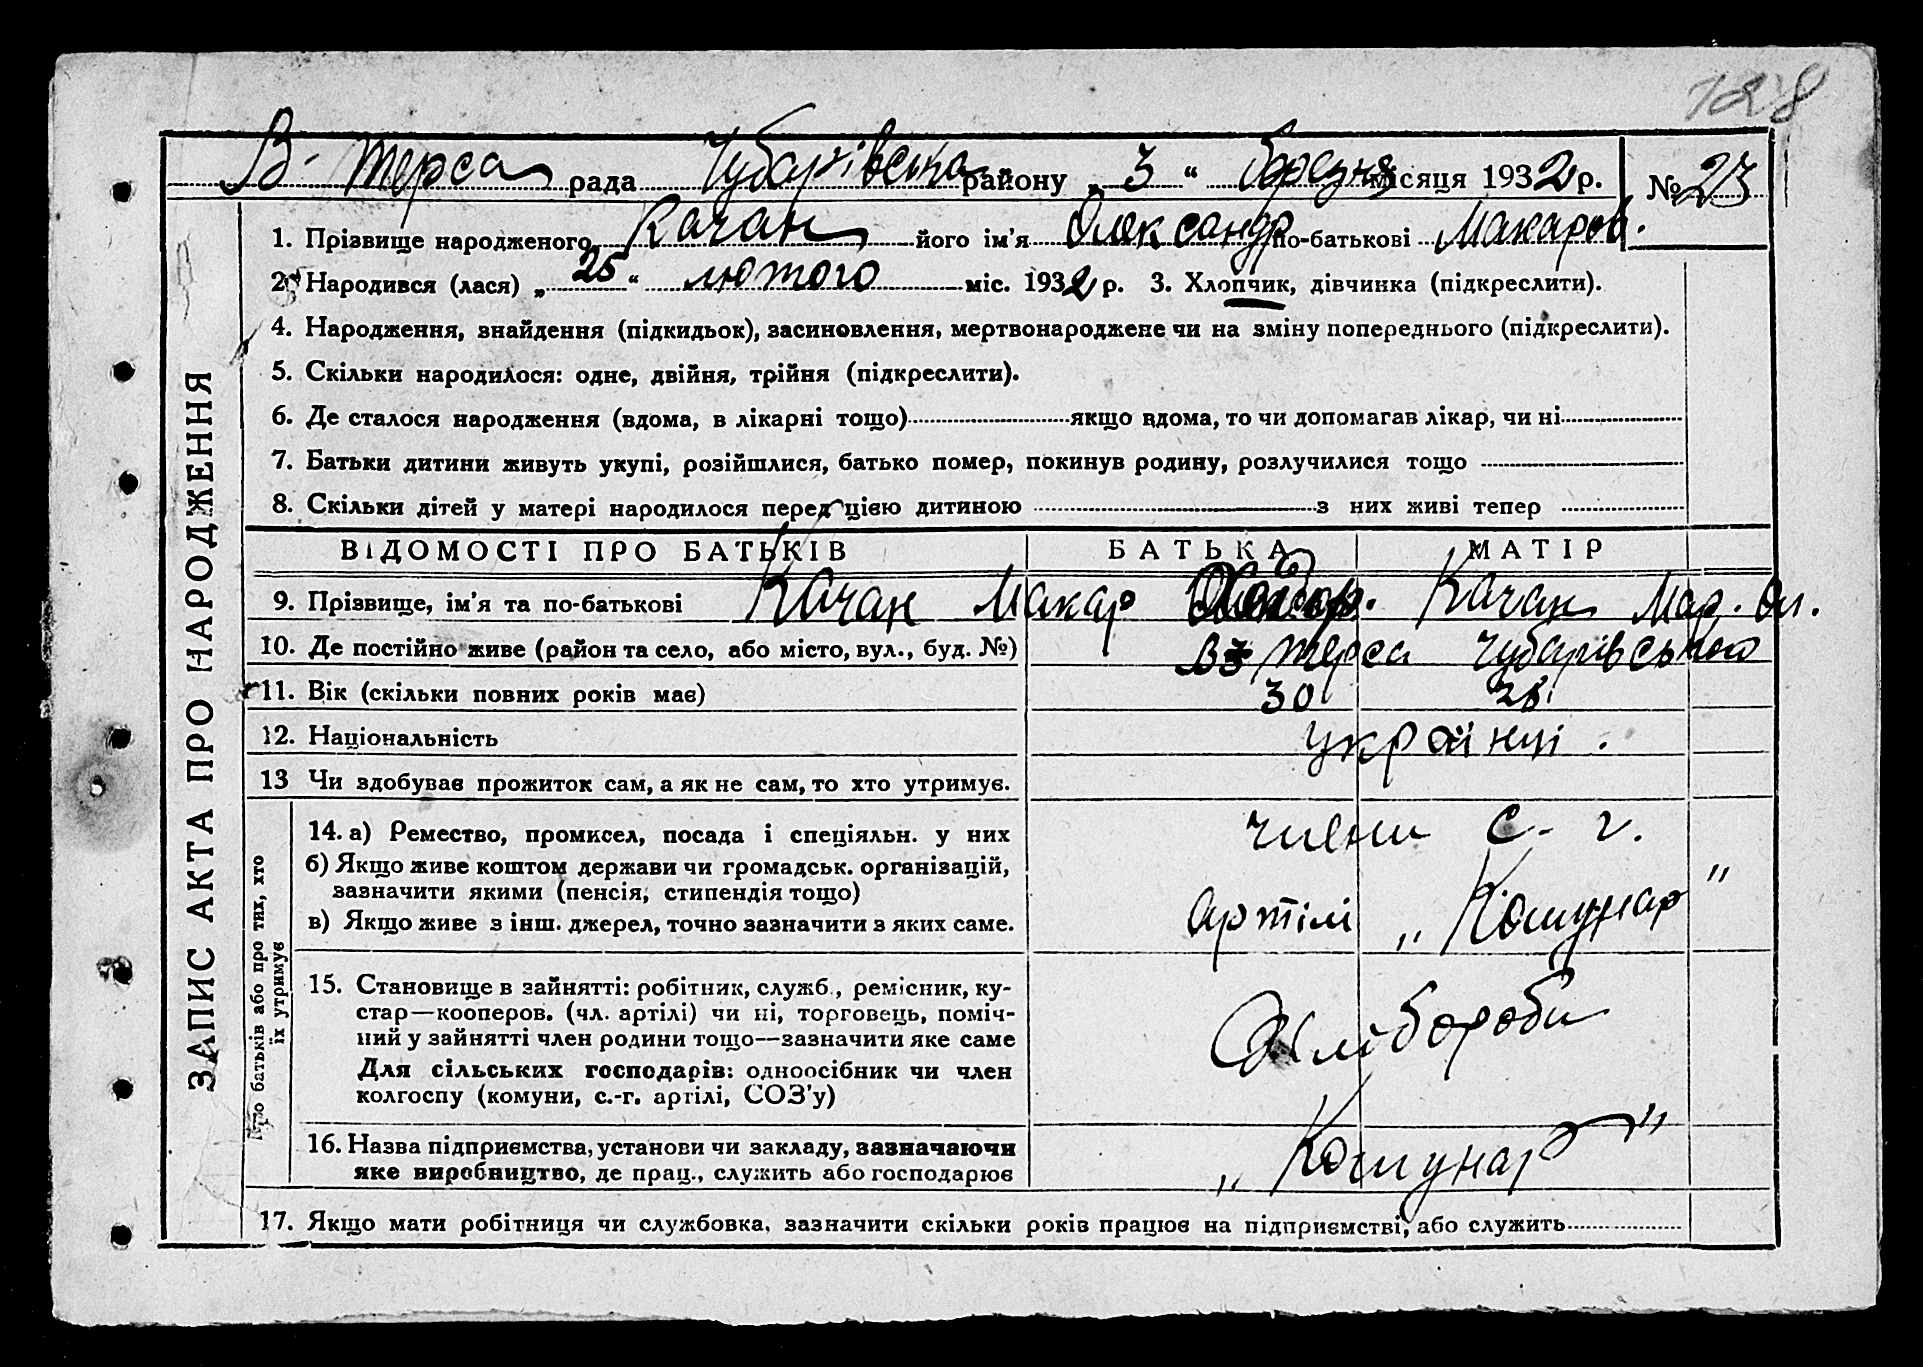 128
В-Терса рада Чубарівська району „ 3 “ березня місяця 1932 р. № 23
1. Прізвище народженого Качан його ім’я Олександр по-батькові Макаров.
2. Народився (лася) „ 25 “ лютого міс. 1932 р. 3. Хлопчик, дівчинка (підкреслити).
4. Народження, знайдення (підкидьок), засиновлення, мертвонароджене чи на зміну попереднього (підкреслити).
5. Скільки народилося: одне, двійня, трійня (підкреслити).
6. Де сталося народження (вдома, в лікарні тощо) якщо вдома, то чи допомагав лікар, чи ні
7. Батьки дитини живуть укупі, розійшлися, батько помер, покинув родину, розлучилися тощо
8. Скільки дітей у матері народилося перед цією дитиною з них живі тепер
ЗАПИС АКТА ПРО НАРОДЖЕННЯ
ВІДОМОСТІ ПРО БАТЬКІВ БАТЬКА МАТІР
9. Прізвище, ім’я та по-батькові Качан Макар Качан Мар. Ол.
10. Де постійно живе (район та село, або місто, вул., буд. №) Терса Чубарівського
11. Вік (скільки повних років має) 30 28
12. Національність українці.
13 Чи здобуває прожиток сам, а як не сам, то хто утримує.
Про батьків або про тих, хто
їх утримує
14. а) Ремество, промисел, посада і спеціяльн. у них члени с.-г.
б) Якщо живе коштом держави чи громадськ. організацій,
зазначити якими (пенсія, стипендія тощо)
в) Якщо живе з інш. джерел, точно зазначити з яких саме. артілі „Комунар”
15. Становище в зайнятті: робітник, служб., ремісник, ку-
стар—кооперов. (чл. артілі) чи ні, торговець, поміч-
ний у зайнятті член родини тощо—зазначити яке саме Хлібороби
Для сільських господарів: одноосібник чи член
колгоспу (комуни, с.-г. артілі, СОЗ’у)
16. Назва підприємства, установи чи закладу, зазначаючи
яке виробництво, де прац., служить або господарює „Комунар”
17. Якщо мати робітниця чи службовка, зазначити скільки років працює на підприємстві, або служить